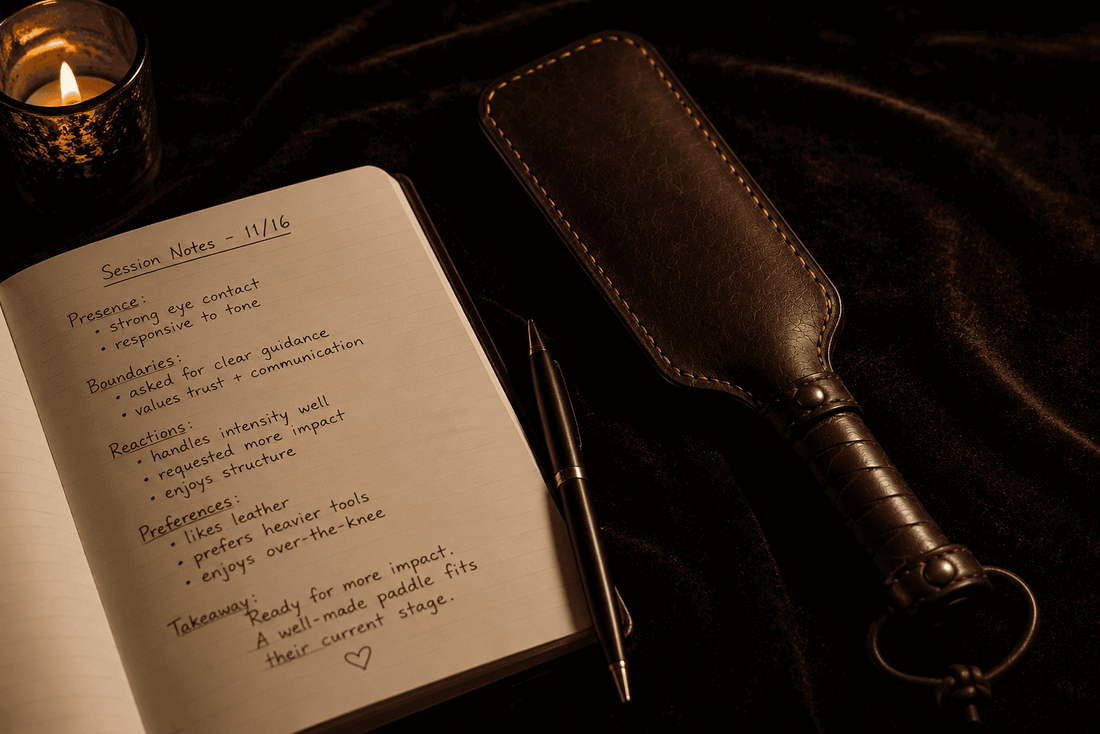 Session Notes - 11/16
Presence:
• strong eye contact
• responsive to tone
Boundaries:
• asked for clear guidance
• values trust + communication
Reactions:
• handles intensity well
• requested more impact
• enjoys structure
Preferences:
• likes leather
• prefers heavier tools
• enjoys over-the-knee
Takeaway:
Ready for more impact.
A well-made paddle fits
their current stage.
♡